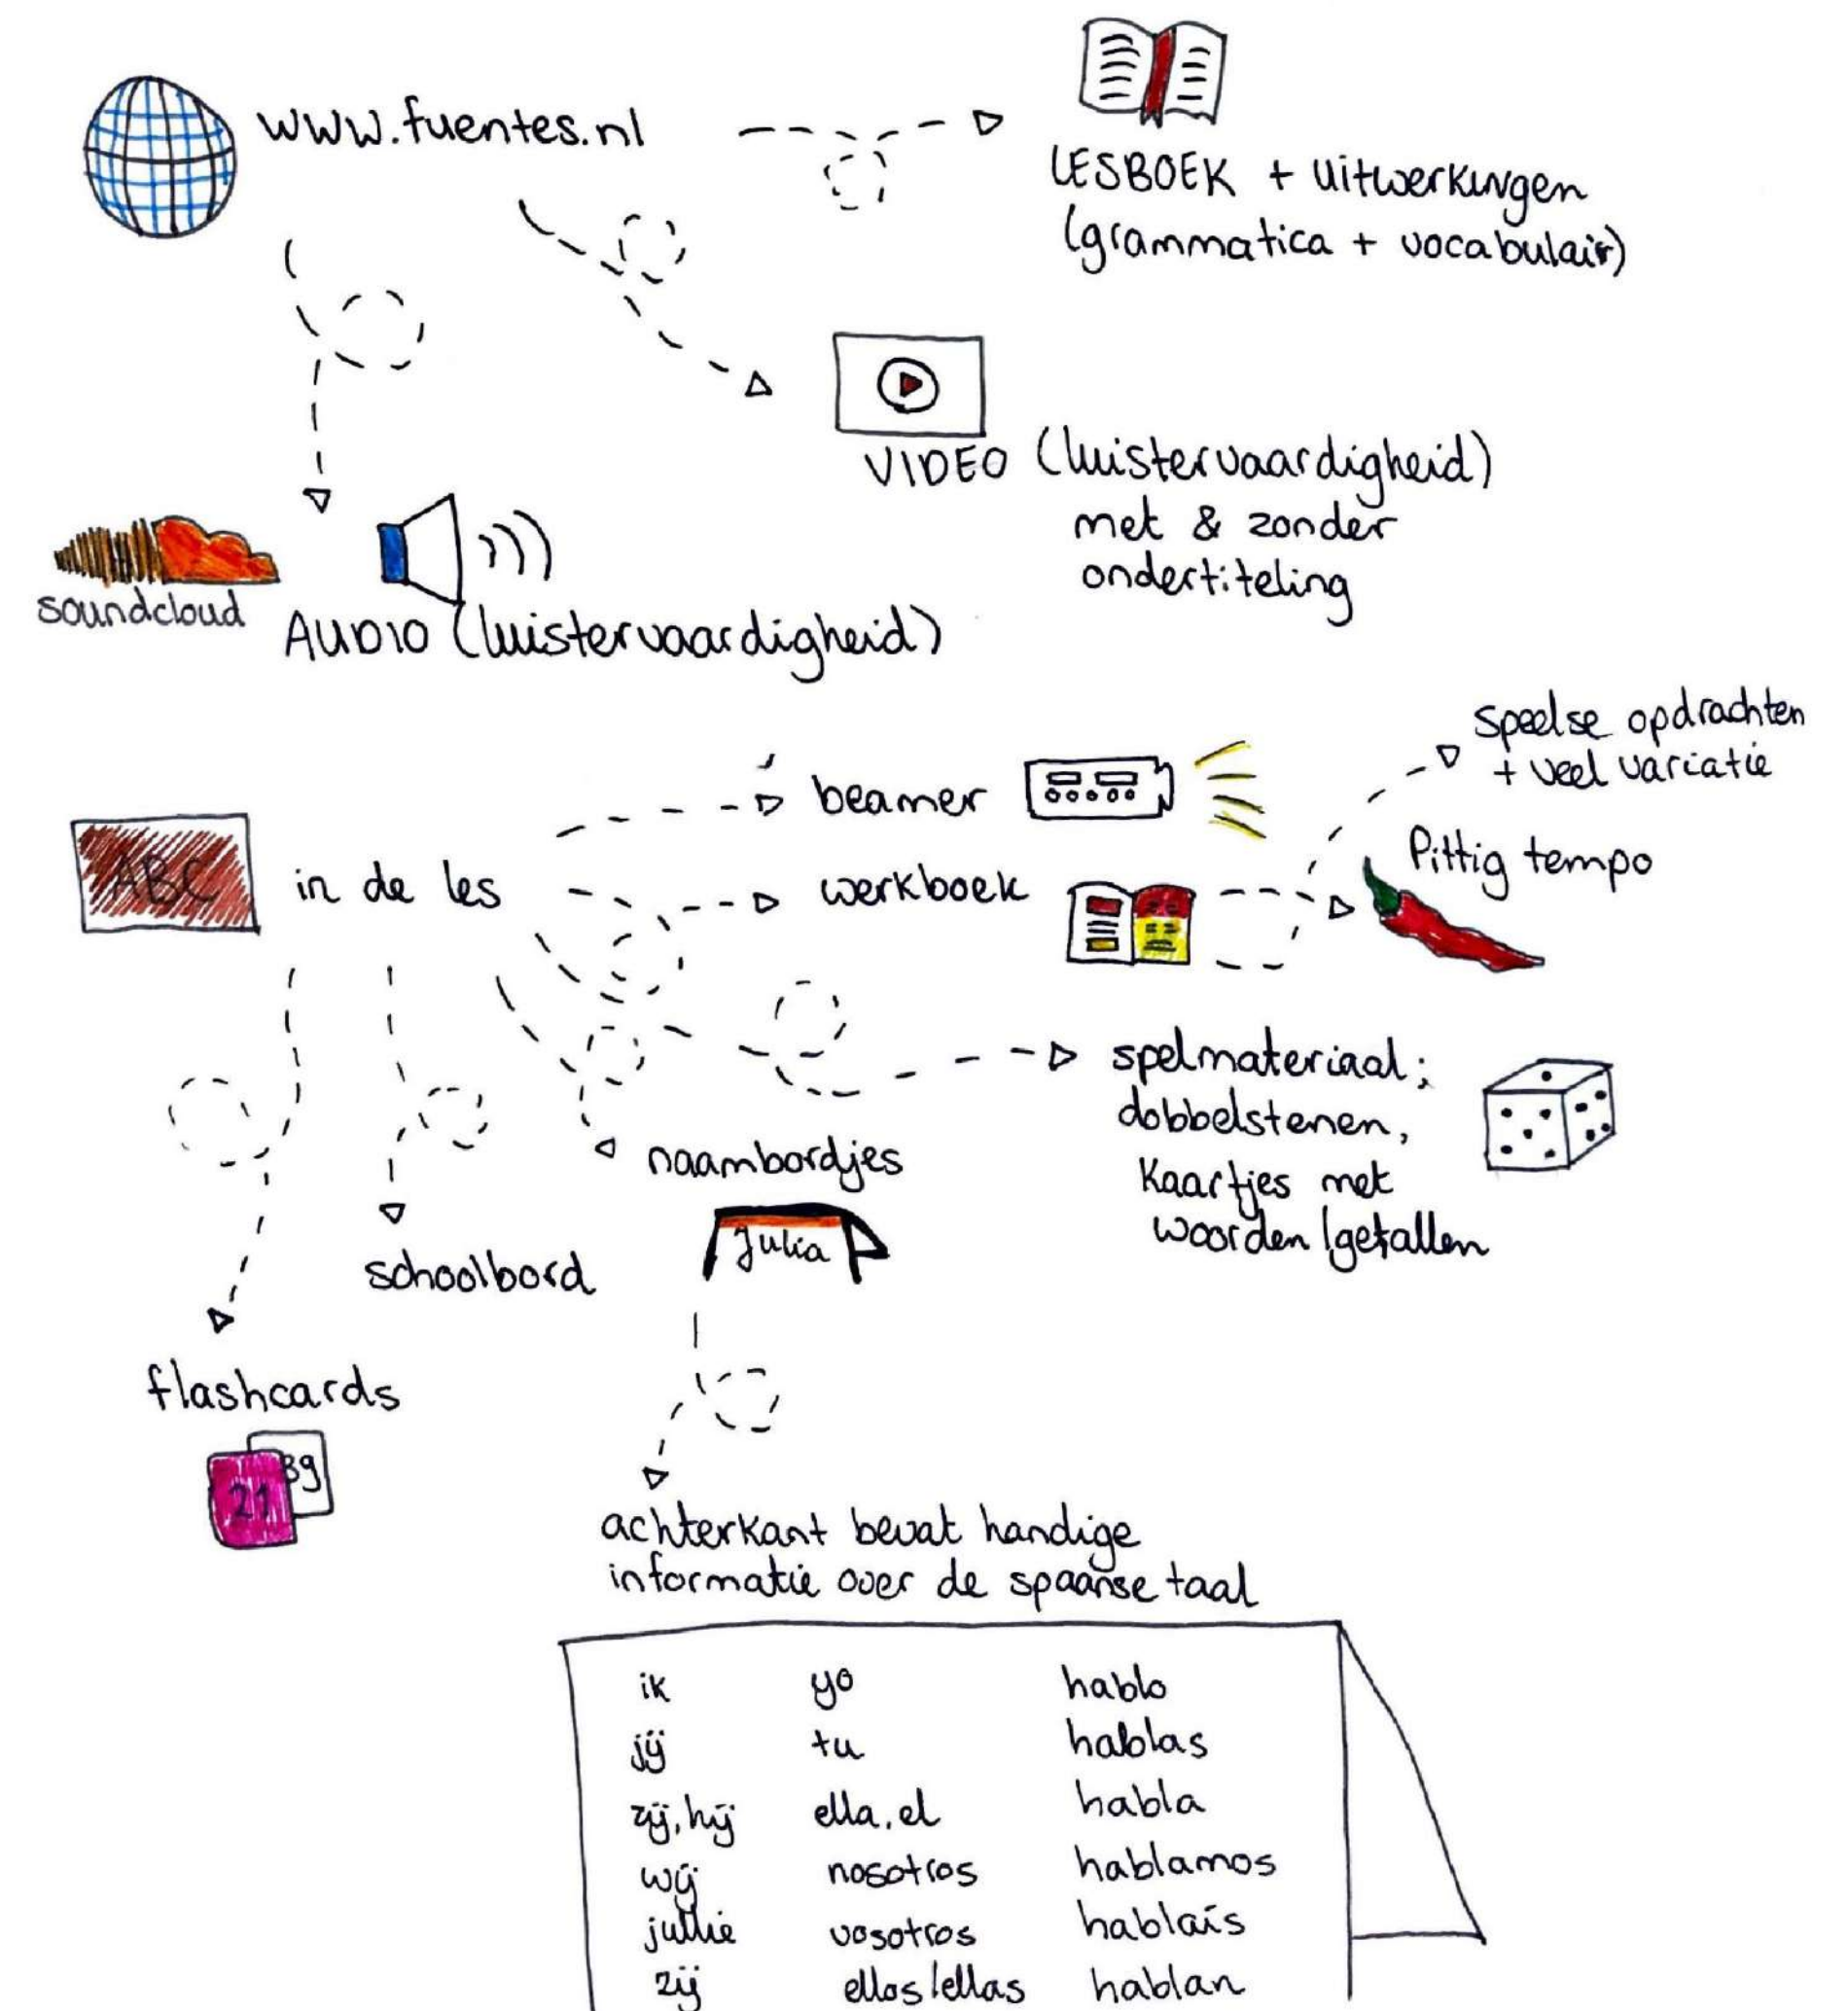 www.fuentes.nl
LESBOEK + uitwerkingen
(grammatica + vocabulair)
VIDEO (luistervaardigheid)
met & zonder
ondertiteling
soundcloud
AUDIO (luistervaardigheid)
speelse opdrachten
+ veel variatie
beamer
Pittig tempo
ABC
in de les
werkboek
spelmateriaal;
dobbelstenen,
kaartjes met
woorden/getallen
naambordjes
Julia
schoolbord
flashcards
21
89
achterkant bevat handige
informatie over de spaanse taal
ik yo hablo
jij tu hablas
zij, hij ella, el habla
wij nosotros hablamos
jullie vosotros hablaís
zij ellos/ellas hablan